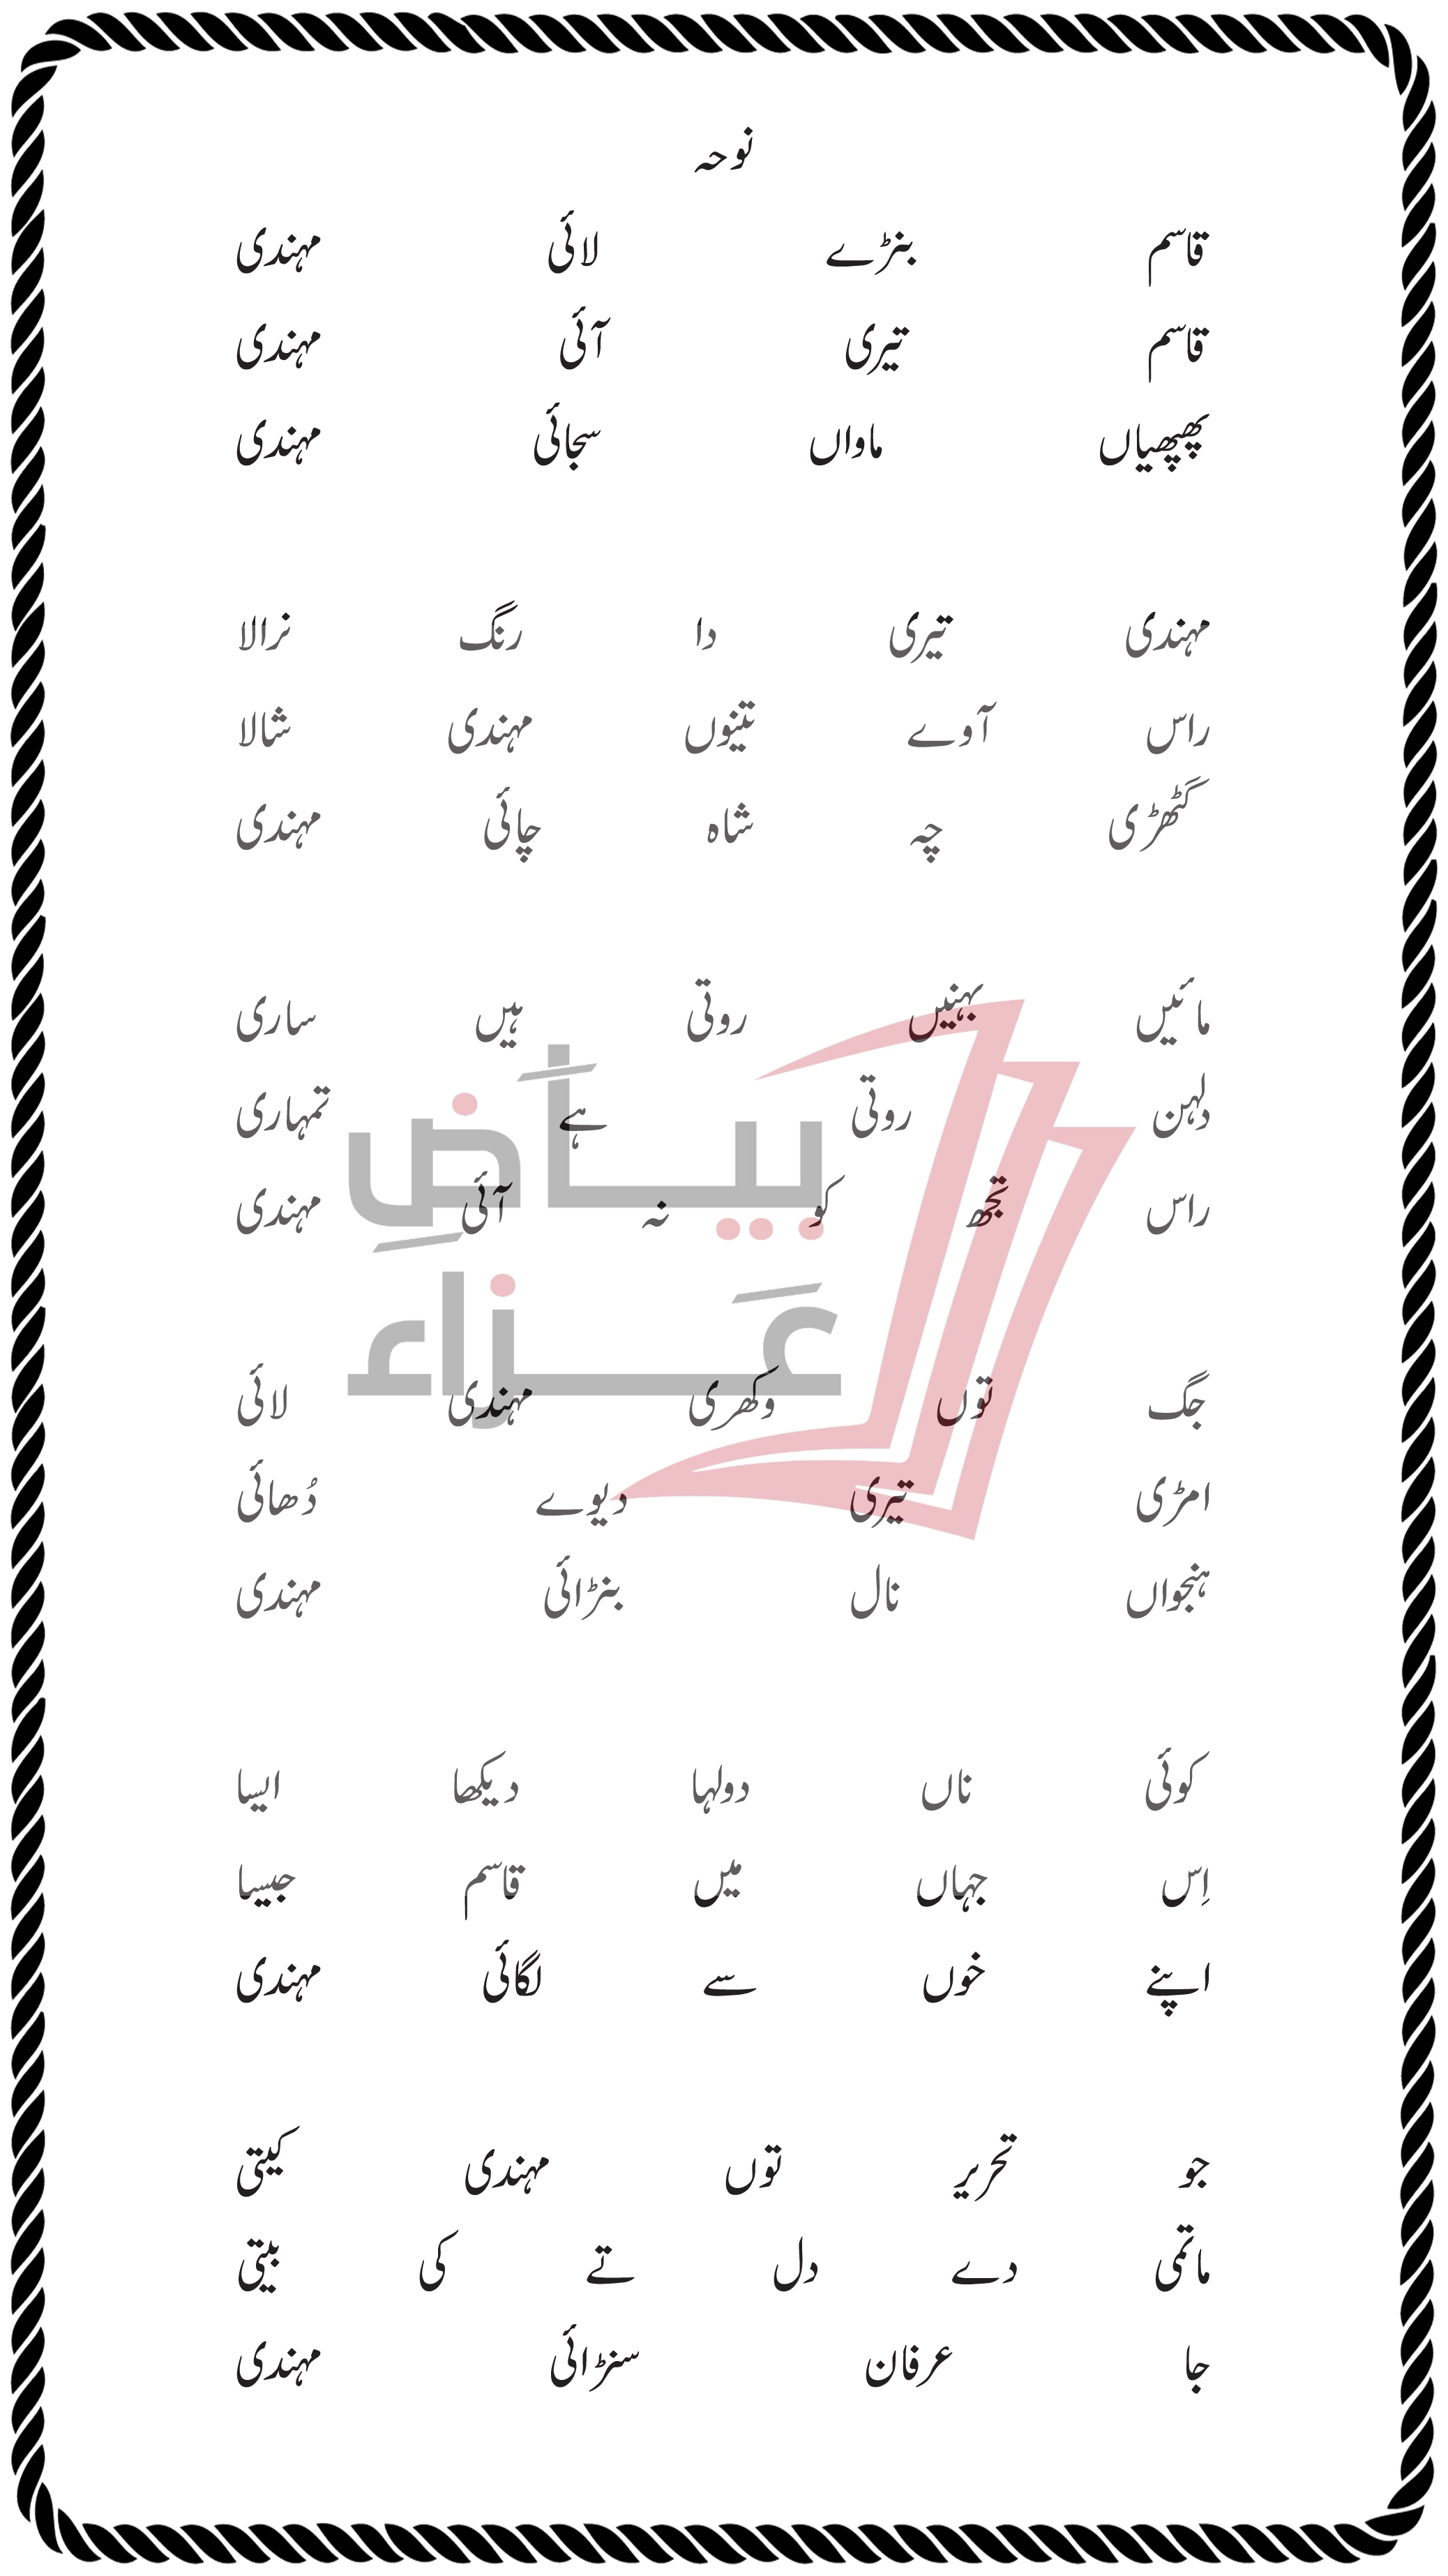 نوحہ
قاسم بنڑے لائی مہندی
قاسم تیری آئی مہندی
پھپھیاں ماواں سجائی مہندی
مہندی تیری دا رنگ نرالا
راس آوے تینوں مہندی شالا
گٹھڑی چہ شاہ چائی مہندی
مائیں بہنیں روتی ہیں ساری
دلہن روتی ہے تمہاری
راس تجھ کو نہ آئی مہندی
بیاضِ عزاء
جگ توں وکھری مہندی لائی
امڑی تیری دیوے دُھائی
ہنجواں نال بنڑائی مہندی
کوئی ناں دولہا دیکھا ایسا
اِس جہاں میں قاسم جیسا
اپنے خوں سے لگائی مہندی
جو تحریر توں مہندی کیتی
ماتمی دے دل تے کی بیتی
جا عرفان سنڑائی مہندی